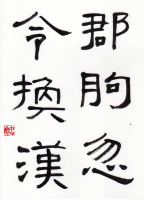 郡朐忽
令換漢